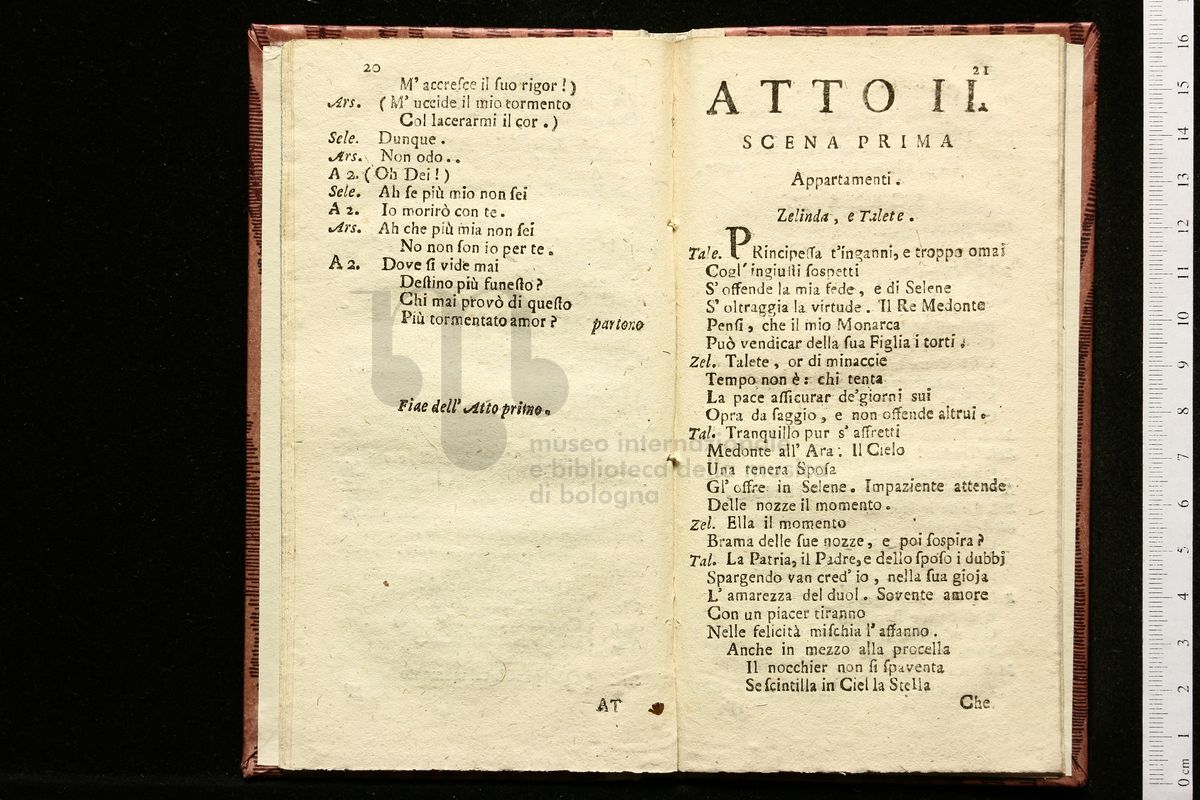 20
M' accreſce il ſuo rigor !)
Ars. ( M' uccide il mio tormento
Col lacerarmi il cor . )
Sele. Dunque .
Ars. Non odo . .
A 2. ( Oh Dei ! )
Sele. Ah ſe più mio non ſei
A 2. Io morirò con te .
Ars. Ah che più mia non ſei
No non ſon io per te .
A 2. Dove ſi vide mai
Deſtino più funeſto ?
Chi mai provò di queſto
Più tormentato amor ? partono
Fine dell' Atto primo.
AT
21
ATTO II.
SCENA PRIMA
Appartamenti .
Zelinda , e Talete .
Tale. PRincipeſſa t'inganni, e troppo omai
Cogl' ingiuſti ſospetti
S' offende la mia fede , e di Selene
S' oltraggia la virtude . Il Re Medonte
Penſi , che il mio Monarca
Può vendicar della ſua Figlia i torti .
Zel. Talete , or di minaccie
Tempo non è : chi tenta
La pace aſſicurar de'giorni sui
Opra da ſaggio , e non offende altrui .
Tal. Tranquillo pur s' affretti
Medonte all' Ara : Il Cielo
Una tenera Spoſa
Gl' offre in Selene . Impaziente attende
Delle nozze il momento .
Zel. Ella il momento
Brama delle ſue nozze , e poi ſospira ?
Tal. La Patria, il Padre, e dello ſpoſo i dubbj
Spargendo van cred' io , nella ſua gioja
L' amarezza del duol . Sovente amore
Con un piacer tiranno
Nelle felicità miſchia l' affanno .
Anche in mezzo alla procella
Il nocchier non ſi ſpaventa
Se ſcintilla in Ciel la Stella
Che
museo internazionale
e biblioteca della musica
di bologna
0 cm 1 2 3 4 5 6 7 8 9 10 11 12 13 14 15 16